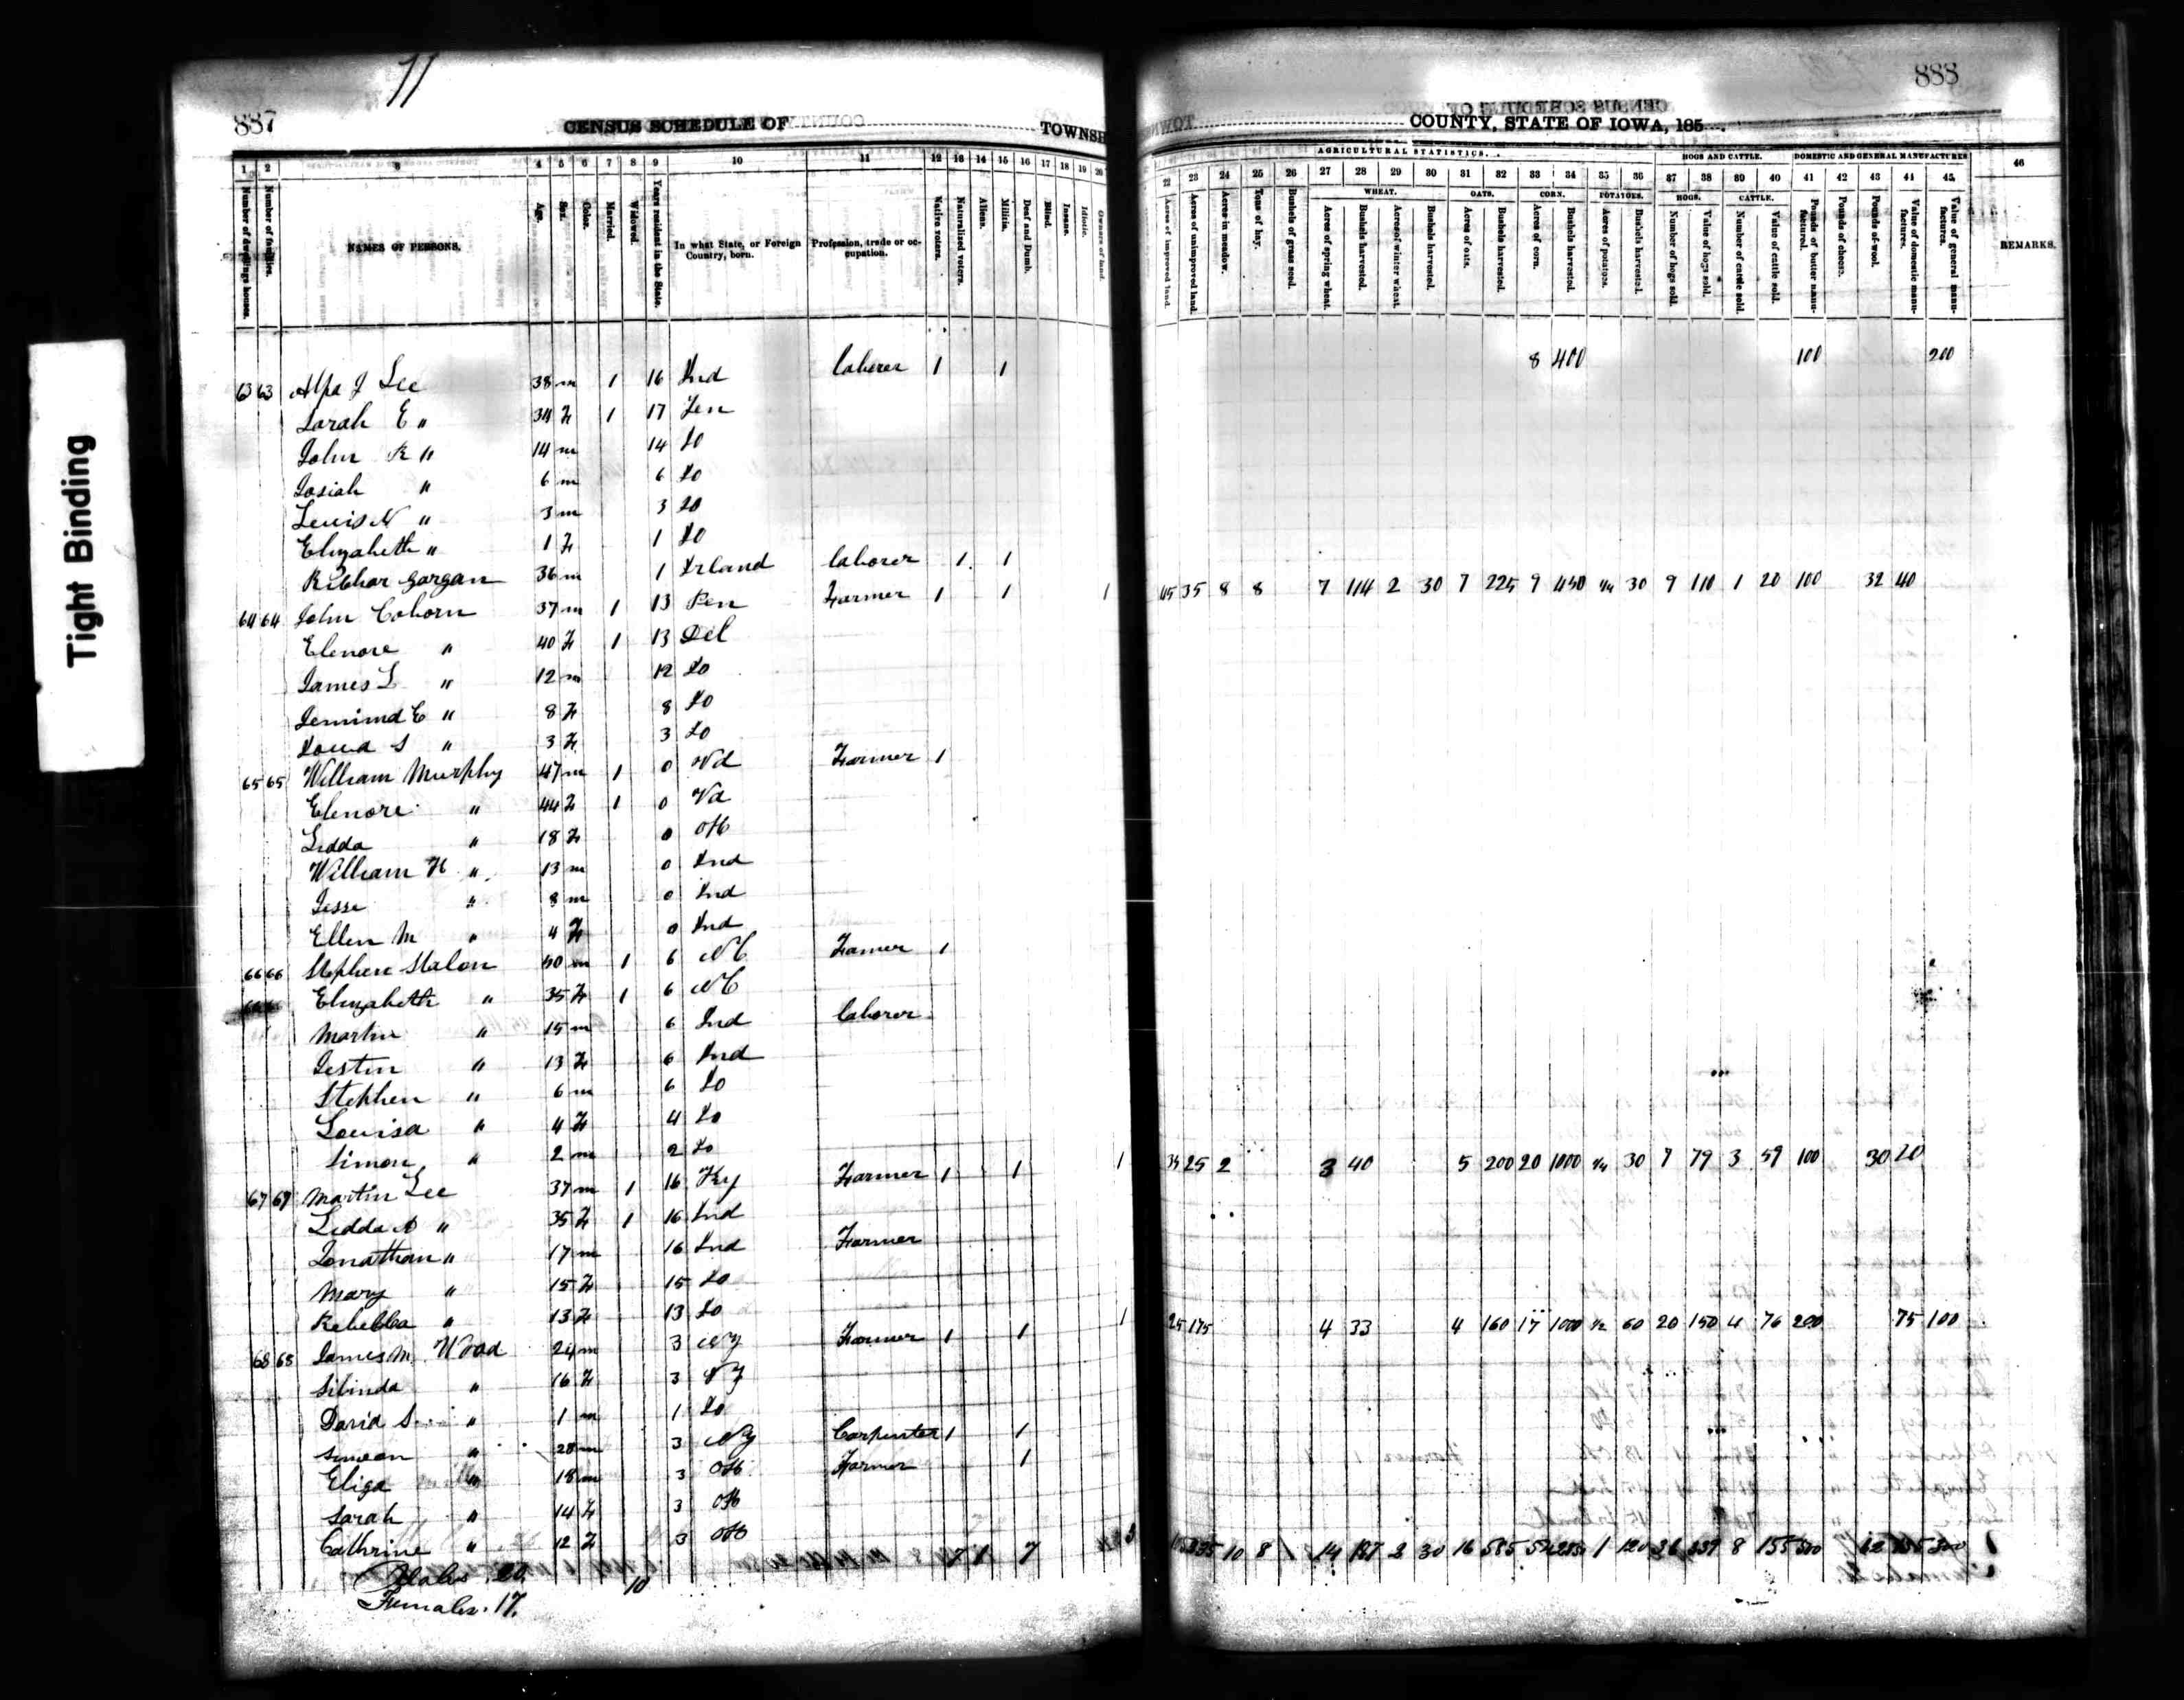 Tight Binding
11
887
CENSUS SCHEDULE OF
TOWNSH
1 2 3 4 5 6 7 8 9 10 11 12 13 14 15 16 17 18 19 20
Number of dwellings houses. Number of families. NAMES OF PERSONS. Age. Sex. Color. Married. Widowed. Years resident in the State. In what State, or Foreign Country, born. Profession, trade or occupation. Native voters. Naturalized voters. Aliens. Militia. Deaf and Dumb. Blind. Insane. Idiotic. Owners of land.
63 63 Alpa J Lee 38 m 1 16 Ind laborer 1 1
Sarah E " 34 F 1 17 Ten
John R " 14 m 14 Io
Josiah " 6 m 6 Io
Lewis N " 3 m 3 Io
Elizabeth " 1 F 1 Io
Richar Gargan 36 m 1 Irland laborer 1 1
64 64 John Coborn 37 m 1 13 Pen Farmer 1 1 1
Elenore " 40 F 1 13 Del
James L " 12 m 12 Io
Jemimd E " 8 F 8 Io
Iowa S " 3 F 3 Io
65 65 William Murphy 47 m 1 0 Vd Farmer 1
Elenore " 44 F 1 0 Va
Lidda " 18 F 0 OH
William H " 13 m 0 Ind
Jesse " 8 m 0 Ind
Ellen M " 4 F 0 Ind
66 66 Stephen Stalon 40 m 1 6 NC Famer 1
Elizabeth " 35 F 1 6 NC
Martin " 15 m 6 Ind laborer
Jestin " 13 F 6 Ind
Stephen " 6 m 6 Io
Louisa " 4 F 4 Io
Simon " 2 m 2 Io
67 67 Martin Lee 37 m 1 16 Ky Farmer 1 1 1
Lidda A " 35 F 1 16 Ind
Jonathan " 17 m 16 Ind Farmer
Mary " 15 F 15 Io
Rebecca " 13 F 13 Io
68 68 James M. Wood 24 m 3 NY Farmer 1 1 1
Silinda " 16 F 3 NY
David S " 1 m 1 Io
Simeon " 28 m 3 NY Carpenter 1 1
Eliga " 18 m 3 OH Farmer 1
Sarah " 14 F 3 OH
Cathrine " 12 F 3 OH
7 1 7 3
Males 20.
Females. 17.
10
888
COUNTY, STATE OF IOWA, 185 .
AGRICULTURAL STATISTICS. HOGS AND CATTLE. DOMESTIC AND GENERAL MANUFACTURES
22 23 24 25 26 27 28 29 30 31 32 33 34 35 36 37 38 39 40 41 42 43 44 45 46
WHEAT. OATS. CORN. POTATOES. HOGS. CATTLE.
Acres of improved land. Acres of unimproved land. Acres in meadow. Tons of hay. Bushels of grass seed. Acres of spring wheat. Bushels harvested. Acres of winter wheat. Bushels harvested. Acres of oats. Bushels harvested. Acres of corn. Bushels harvested. Acres of potatoes. Bushels harvested. Number of hogs sold. Value of hogs sold. Number of cattle sold. Value of cattle sold. Pounds of butter manufactured. Pounds of cheese. Pounds of wool. Value of domestic manufactures. Value of general manufactures. REMARKS.
8 400 100 200
45 35 8 8 7 114 2 30 7 225 9 450 1/4 30 9 110 1 20 100 32 40
35 25 2 3 40 5 200 20 1000 1/4 30 7 79 3 59 100 30 20
25 175 4 33 4 160 17 1000 1/2 60 20 150 4 76 200 75 100
10 8 14 187 2 30 16 585 54 2850 1 120 36 339 8 155 500 62 135 300